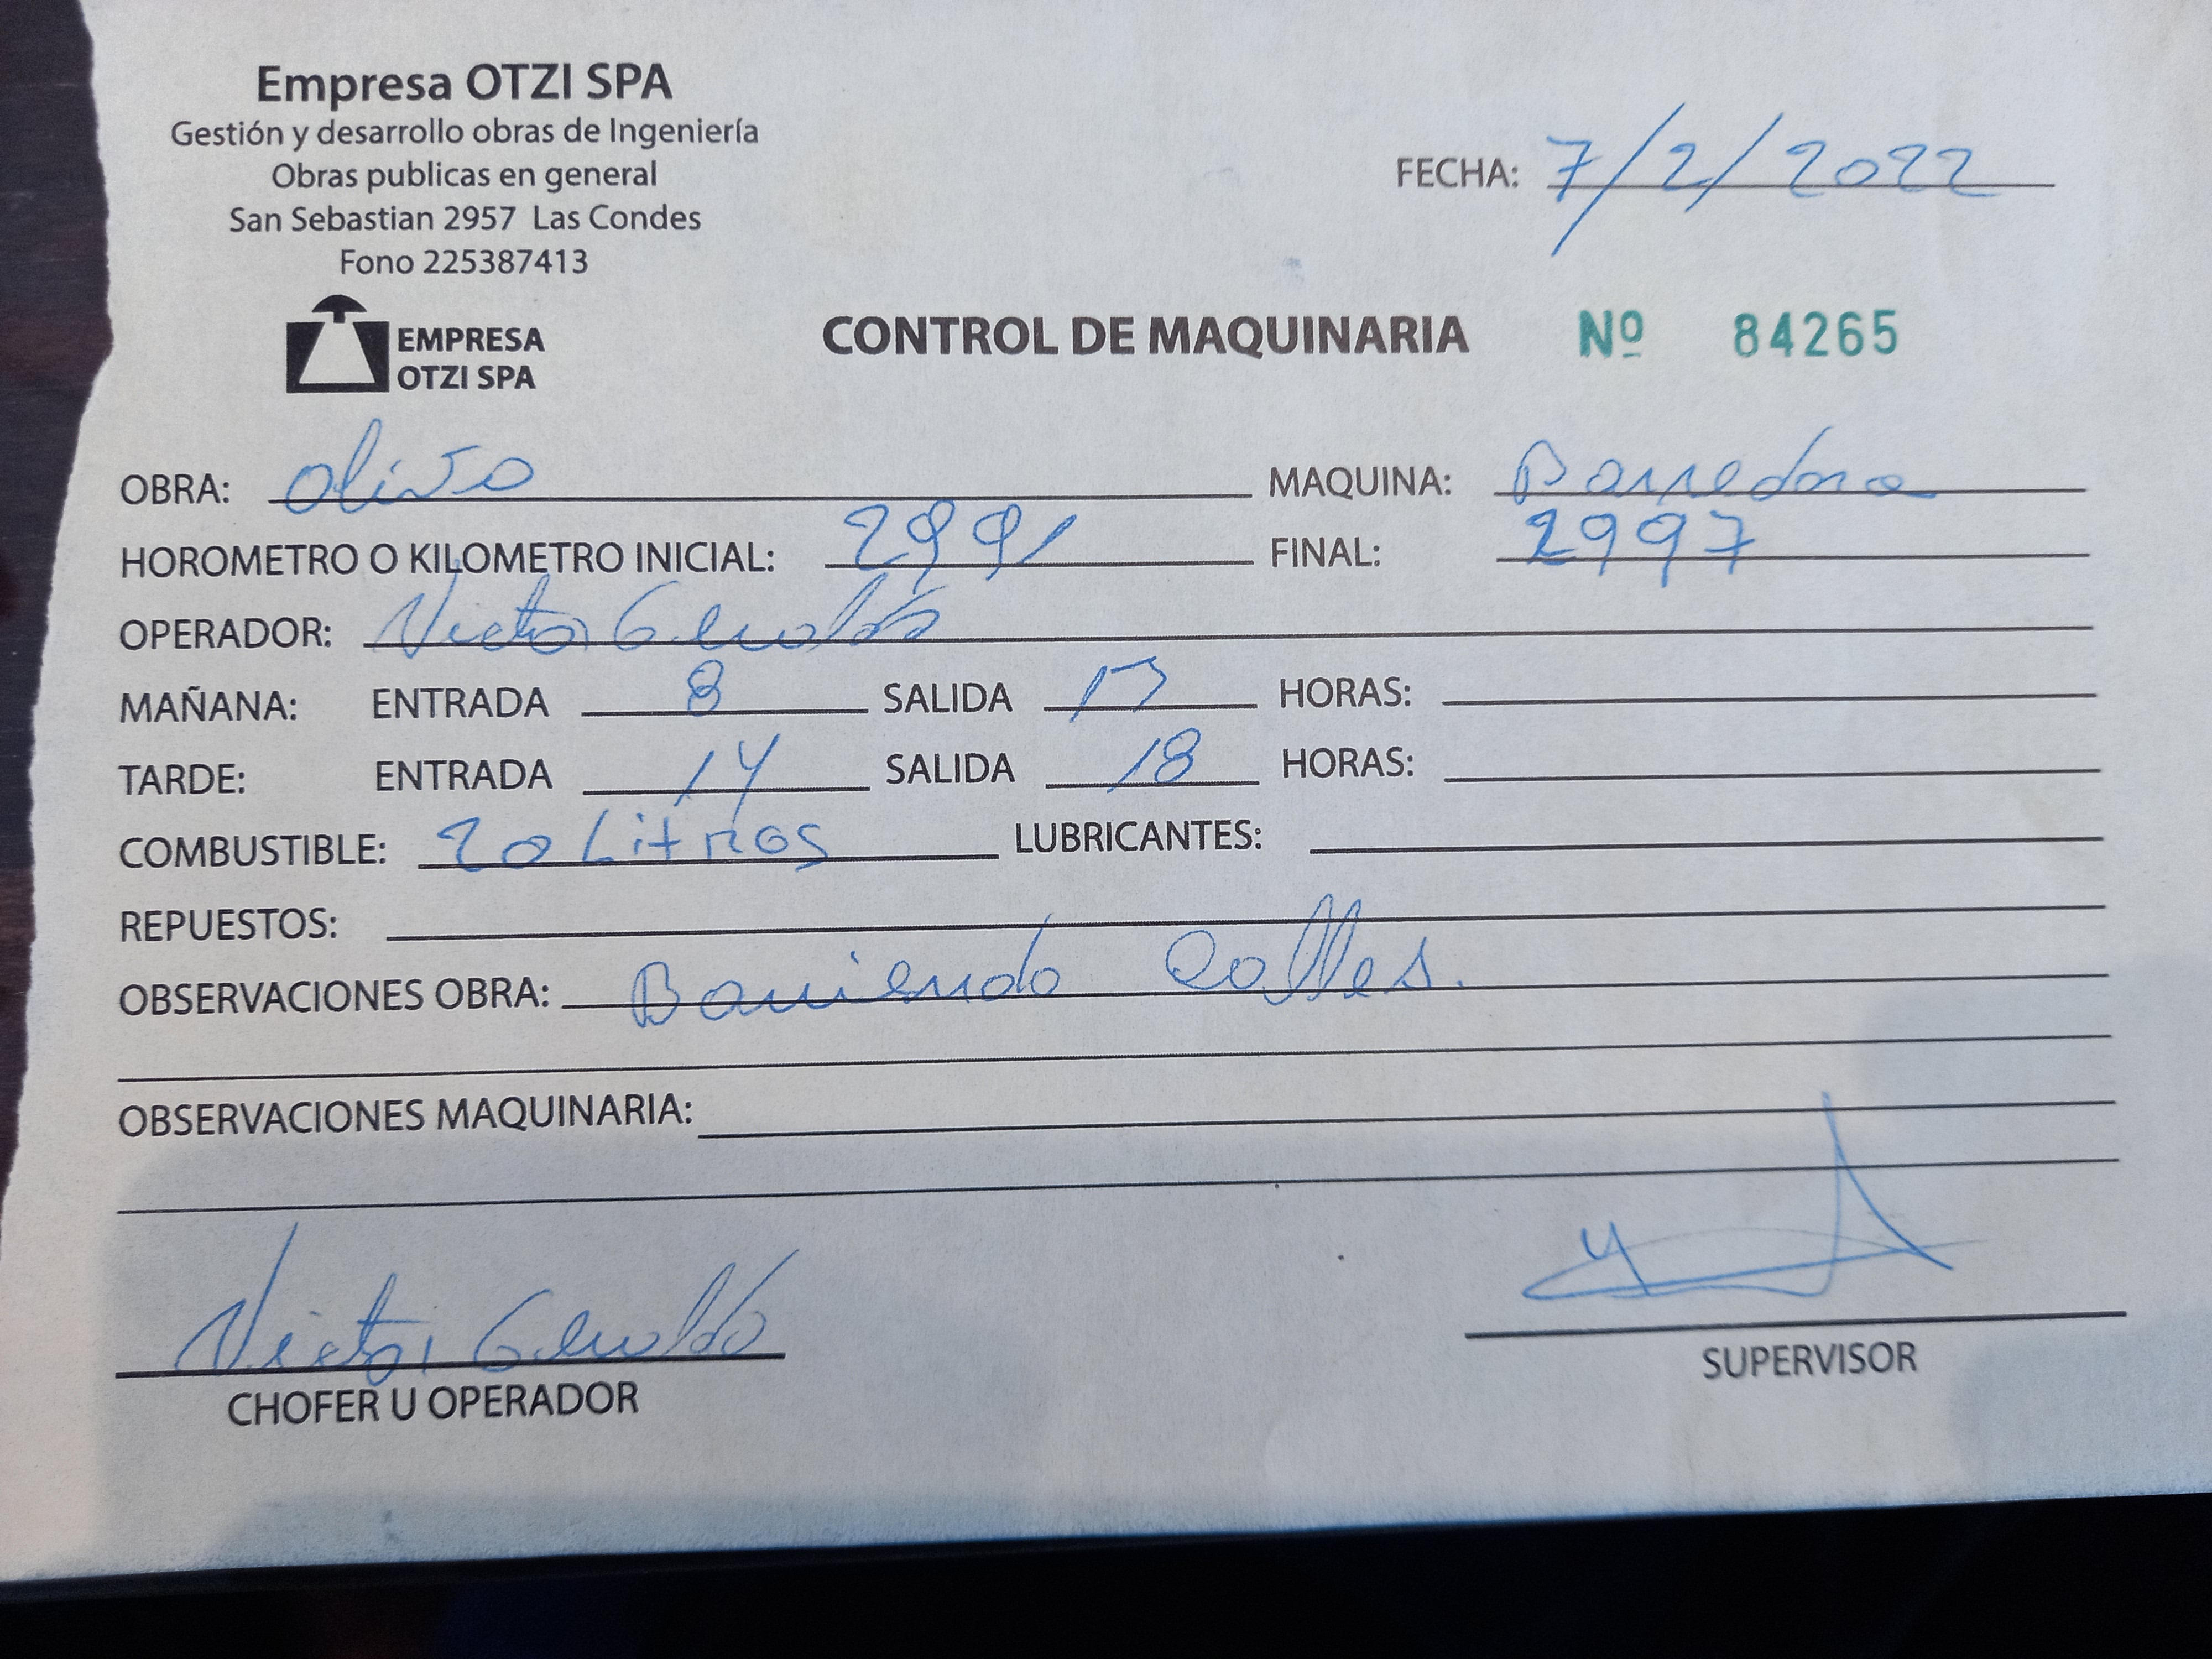 Empresa OTZI SPA
Gestión y desarrollo obras de Ingeniería
Obras publicas en general
San Sebastian 2957 Las Condes
Fono 225387413
FECHA: 7/2/2022
EMPRESA
OTZI SPA
CONTROL DE MAQUINARIA Nº 84265
OBRA: Olivo MAQUINA: Barredora
HOROMETRO O KILOMETRO INICIAL: 2991 FINAL: 2997
OPERADOR: Victor
MAÑANA: ENTRADA 8 SALIDA 13 HORAS:
TARDE: ENTRADA 14 SALIDA 18 HORAS:
COMBUSTIBLE: 20 Litros LUBRICANTES:
REPUESTOS:
OBSERVACIONES OBRA: Barriendo Calles.
OBSERVACIONES MAQUINARIA:
Victor
CHOFER U OPERADOR
SUPERVISOR